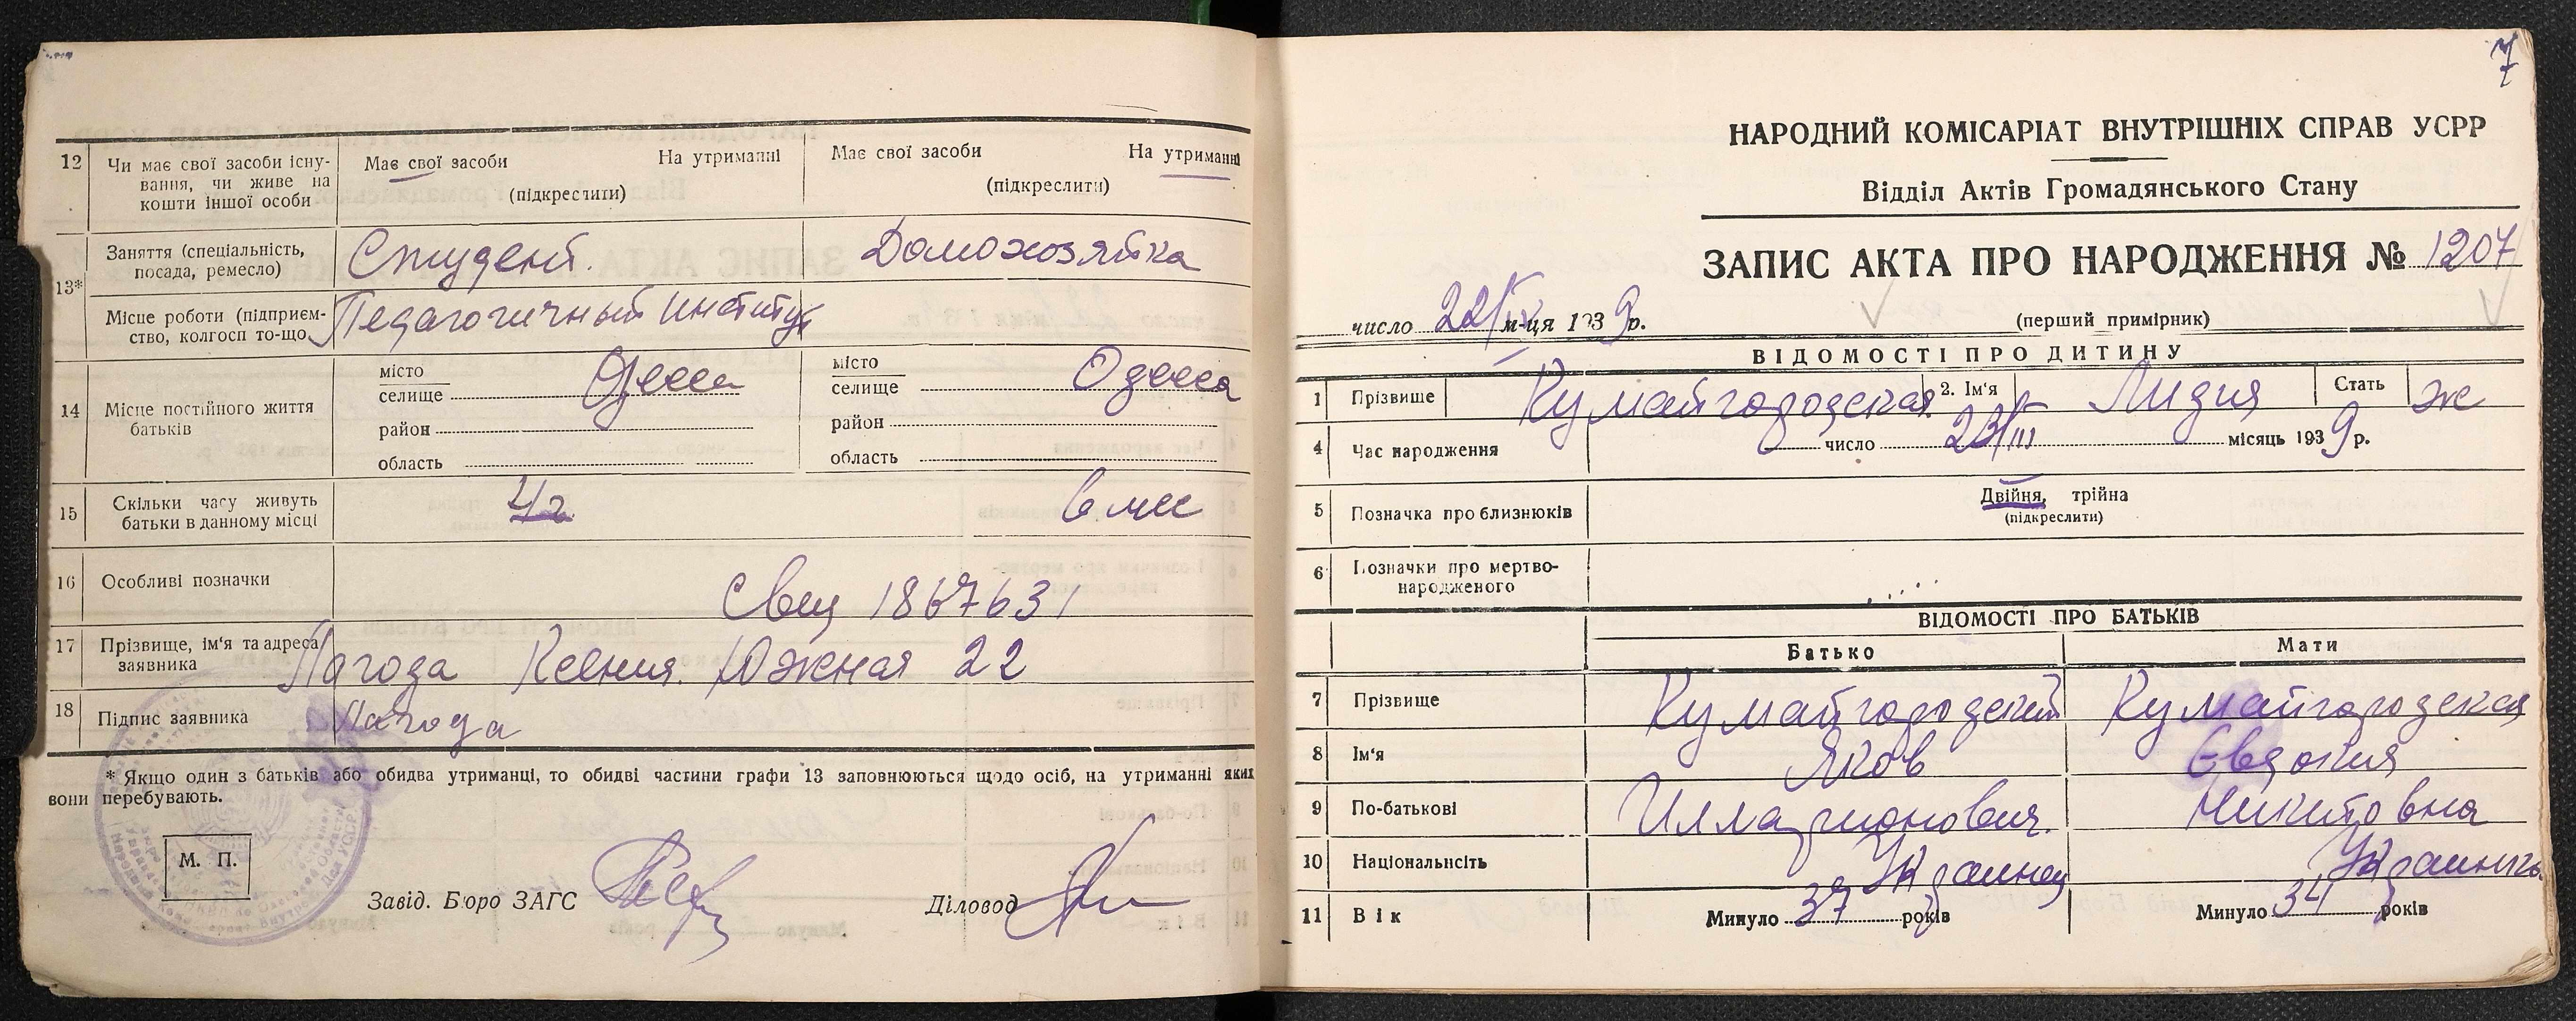 12 Чи має свої засоби існу- Має свої засоби На утриманні Має свої засоби На утриманні
вання, чи живе на (підкреслити) (підкреслити)
кошти іншої особи
13* Заняття (спеціальність, Студент. Домохозяйка
посада, ремесло)
Місце роботи (підприєм- Педагогичный институт
ство, колгосп то-що
14 Місце постійного життя місто Одесса місто Одесса
батьків селище селище
район район
область область
15 Скільки часу живуть 4 г. 6 мес
батьки в данному місці
16 Особливі позначки Свид 1867631
17 Прізвище, ім'я та адреса Лагода Ксения. Южная 22
заявника
18 Підпис заявника Лагода
* Якщо один з батьків або обидва утриманці, то обидві частини графи 13 заповнюються щодо осіб, на утриманні яких
вони перебувають.
М. П.
Завід. Бюро ЗАГС Діловод
7
НАРОДНИЙ КОМІСАРІАТ ВНУТРІШНІХ СПРАВ УСРР
Відділ Актів Громадянського Стану
ЗАПИС АКТА ПРО НАРОДЖЕННЯ № 1207
число 22/IV м-ця 1939 р. (перший примірник)
ВІДОМОСТІ ПРО ДИТИНУ
1 Прізвище Кумайгородская 2. Ім'я Лидия Стать ж
4 Час народження число 23/III місяць 1939 р.
5 Позначка про близнюків Двійня, трійна
(підкреслити)
6 Позначки про мертво-
народженого
ВІДОМОСТІ ПРО БАТЬКІВ
Батько Мати
7 Прізвище Кумайгородский Кумайгородская
8 Ім'я Яков Євдокия
9 По-батькові Илларионович. Никитовна
10 Національність Украинец Украинка
11 Вік Минуло 37 років Минуло 34 років